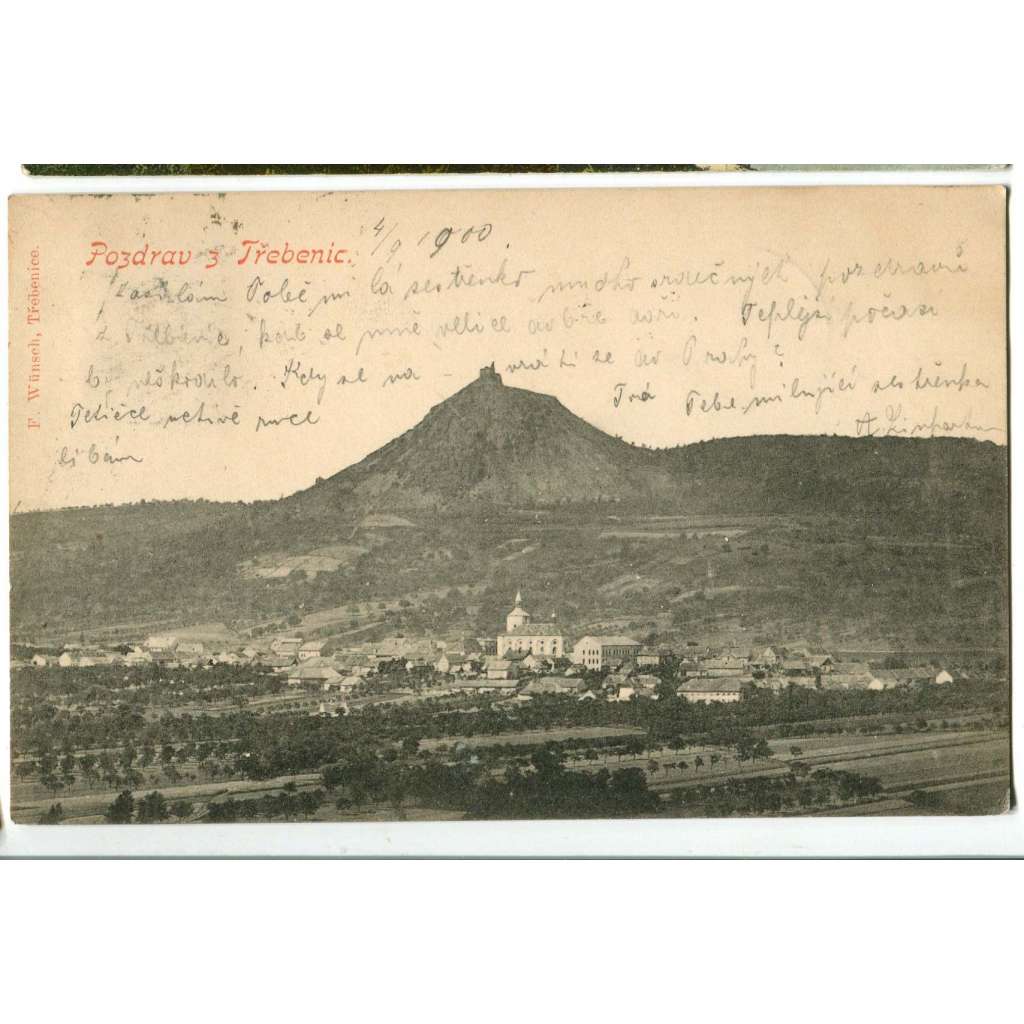 F. Wünsch, Třebenice.
Pozdrav z Třebenic.
4/9 1900.
Zasílám Tobě milá sestřenko mnoho srdečných pozdravů
z Třebenic, kde se mně velice dobře daří. Teplejší počasí
by neškodilo. Kdy se na - vrátíš se do Prahy?
Tvá Tebe milující sestřenka
Tetičce uctivě ruce
líbám
A.